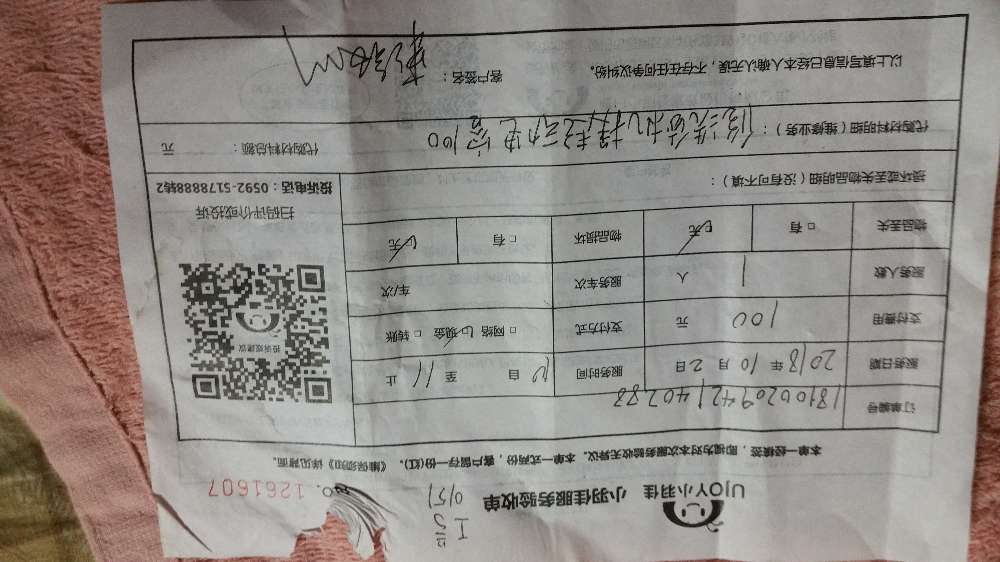 UJOY小羽佳 小羽佳服务验收单
No. 1261607
工号
0151
本单一经核签,即视为对本次服务验收无异议。本单一式两份,客户留存一份(红)。《维保须知》详见背面。
订单编号
服务日期 2018 年 10 月 2 日 服务时间 10 自 至 11 止
支付费用 100 元 支付方式 □ 网络 □ 现金 □ 转账
服务人数 1 人 服务车次 车/次
物品丢失 □ 有 □ 无 物品损坏 □ 有 □ 无
投诉或建议
扫码评价或投诉
投诉电话:0592-5178888转2
损坏或丢失物品明细(没有可不填):
代购材料明细(维修业务): 修洗衣机换起动电容100
代购材料总额: 元
以上填写信息已经本人确认无误,不存在任何争议纠纷。 客户签名: